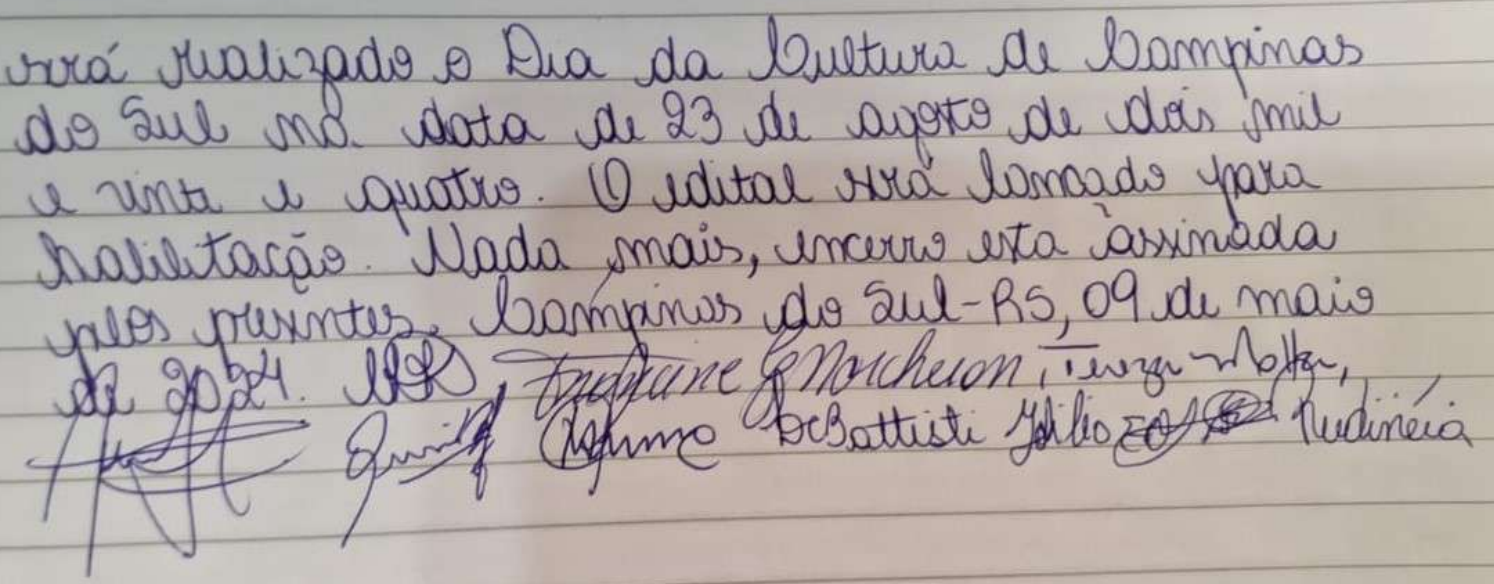 será realizado o Dia da Cultura de Campinas
do Sul na data de 23 de agosto de dois mil
e vinte e quatro. O edital será lançado para
habilitação. Nada mais, encerro esta assinada
pelos presentes. Campinas do Sul-RS, 09 de maio
de 2024. Marcheson, Tereza
DeBattisti Rudinéia